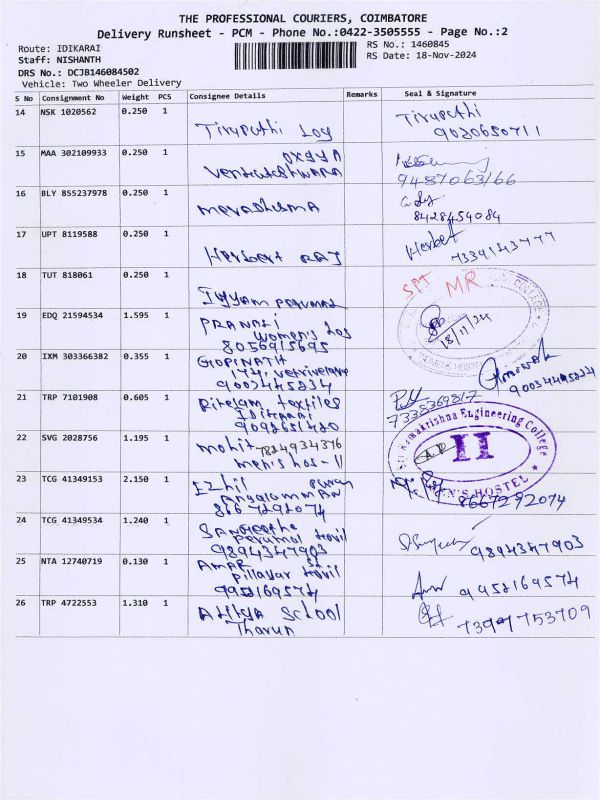 THE PROFESSIONAL COURIERS, COIMBATORE
Delivery Runsheet - PCM - Phone No.:0422-3505555 - Page No.:2
Route: IDIKARAI
RS No.: 1460845
Staff: NISHANTH
RS Date: 18-Nov-2024
DRS No.: DCJB146084502
Vehicle: Two Wheeler Delivery
S No Consignment No Weight PCS Consignee Details Remarks Seal & Signature
14 NSK 1020562 0.250 1
Tirupathi Log Tirupathi
9020650711
15 MAA 302109933 0.250 1
Venkateshwara
9487063166
16 BLY 855237978 0.250 1
8428459084
17 UPT 8119588 0.250 1
Herbert RAJ Herbet
18 TUT 818061 0.250 1
SPT MR
19 EDQ 21594534 1.595 1
PRANATI
women's Hos
8056915695
18/11/24
20 IXM 303366382 0.355 1
GOPINATH
174, vetrivel
9003445234 9003445234
21 TRP 7101908 0.605 1
textiles
IDIKARAI
9092651420
7338369817
22 SVG 2028756 1.195 1
mohit 7824934376
men's hos-II
Sri Ramakrishna Engineering College
II
MEN'S HOSTEL
23 TCG 41349153 2.150 1
Ezhil
Angalamman
8667292074 8667292074
24 TCG 41349534 1.240 1
Sangeetha
Perumal Kovil
9894347903 9894347903
25 NTA 12740719 0.130 1
AMAR
Pillayar Kovil
9952169574 9952169574
26 TRP 4722553 1.310 1
School
Tharun